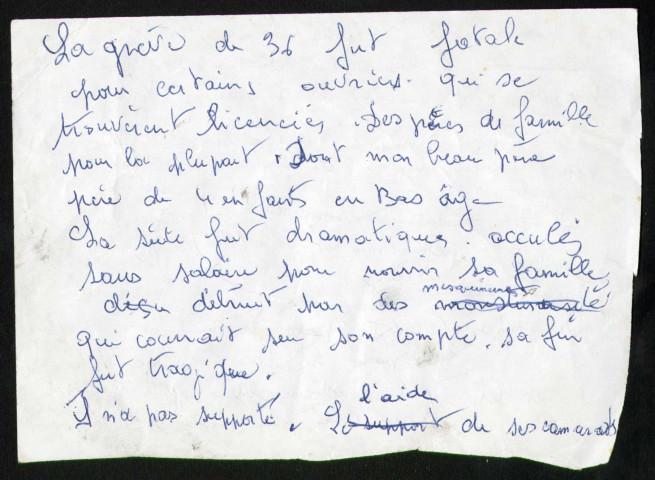 La grève de 36 fut fatale
pour certains ouvriers qui se
trouvèrent licenciés. Des pères de famille
pour la plupart, dont mon beau père
père de 4 enfants en Bas âge
La suite fut dramatique. acculés
sans salaire pour nourrir sa famille,
déçu détruit par des mesquineries
qui courrait seu son compte. sa fin
fut tragique.
Il n'a pas supporté. l'aide
de ses camarads